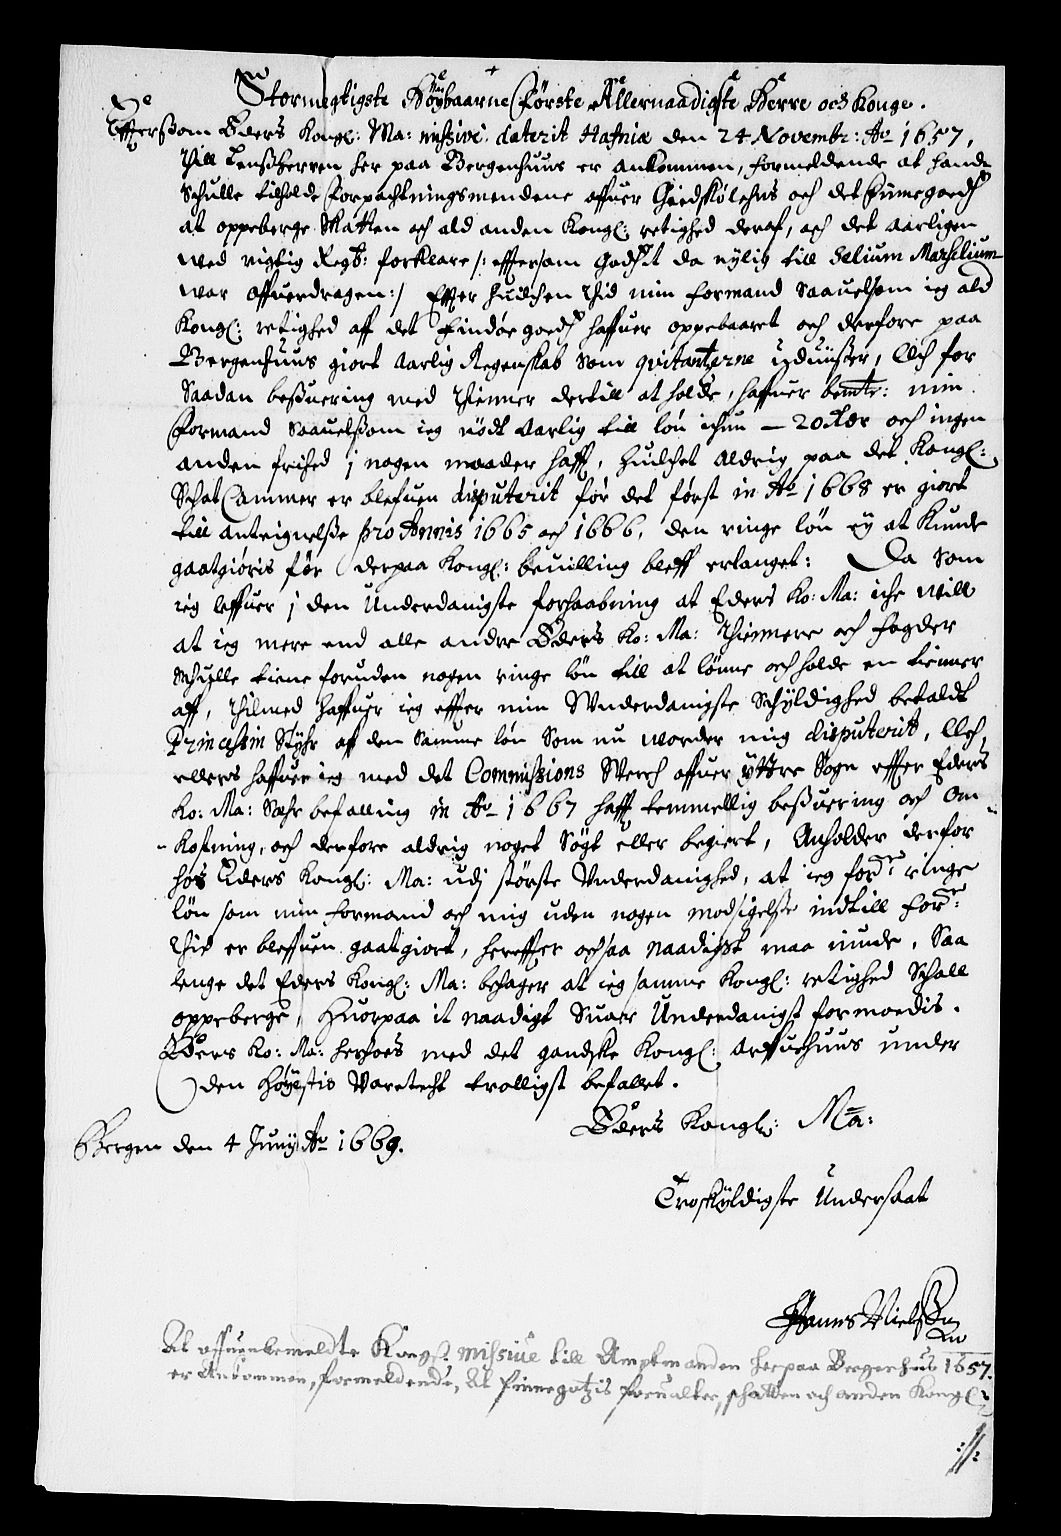 Stormegtigste Høybaarne Første Allernaadigste Herre och Konge.
Effterssom Eders Kongl: Ma: missive, daterit Hafniæ den 24 Novembr: Ao 1657,
Till Lenssherren her paa Bergenhuus er ankommen, formeldende at hand
Schulle tilholde Forpachtningsmendene offuer Giedskølehns och det Finnegoeds
at oppeberge Skatten och ald anden Kongl: rettighed deraf, och det aarligen
med rigtig Regsk: forklare /: effttersom Godsit da nylig till Selium Marselium
war offuerdragen :/ Effter huilchen Thid min formand saauelsom ieg ald
Kongl: rettighed aff det Findøe goeds haffuer oppebaaret och derfore paa
Bergenhuus giort aarlig Regenskab som qvitantzerne udviisser, Och for
Saadan bessuering med Thienner dertill at holde, haffuer bemte: min
Formand saauelssom ieg nødt aarlig till løn ichun — 20 Rdr och ingen
anden frihed j nogen maader hafft, huilchet aldrig paa det Kongl:
Schat Cammer er blefuen disputerit før det først in Ao 1668 er giort
till antegnelsse pro Annis 1665 och 1666, den ringe løn ey at kunde
gaatgiøris før derpaa Kongl: beuilling bleff erlanget: Da som
ieg leffuer j den Underdanigste forhaabning at Eders Ko: Ma: iche will
at ieg mere end alle andre Eders Ko: Ma: Thiennere och fogder
schulle tiene foruden nogen ringe løn till at lønne och holde en tienner
aff, Thilmed haffuer ieg effter min Underdanigste Schyldighed betaldt
Princessin Styhr aff den samme løn som nu worder mig disputerit, Och
ellers haffuer ieg med det Commissions Werch offuer Yttre Sogn effter Eders
Ko: Ma: Sær befalling in Ao 1667 hafft temmellig bessuering och Om-
-kostning, och derfore aldrig noget søgt eller begiert, Anholder derfor
hos Eders Kongl: Ma: udj største Underdanighed, at ieg fordte ringe
løn som min formand och mig uden nogen modsigelsse indtill fordte:
Thid er bleffuen gaatgiort, hereffter ochsaa naadigst maa niude, Saa
lenge det Eders Kongl: Ma: behager at ieg samme Kongl: rettighed Schall
oppeberge, Huorpaa it naadigt Suaer Underdanigst formodis.
Eders Ko: Ma: hersoes med det gandske Kongl: Arffuehuus under
den Høyestis Varetecht trolligst befallet.
Eders Kongl: Ma:
Bergen den 4 Juny Ao 1669.
Troskyldigste Undersaat
Hanns Nielssen
At offuenbemeldte Kongl. missive till Amptmanden her paa Bergenhus 1657.
er Ankommen, formeldende, at finnegotzis forualter, schatten och anden Kongl:
://: